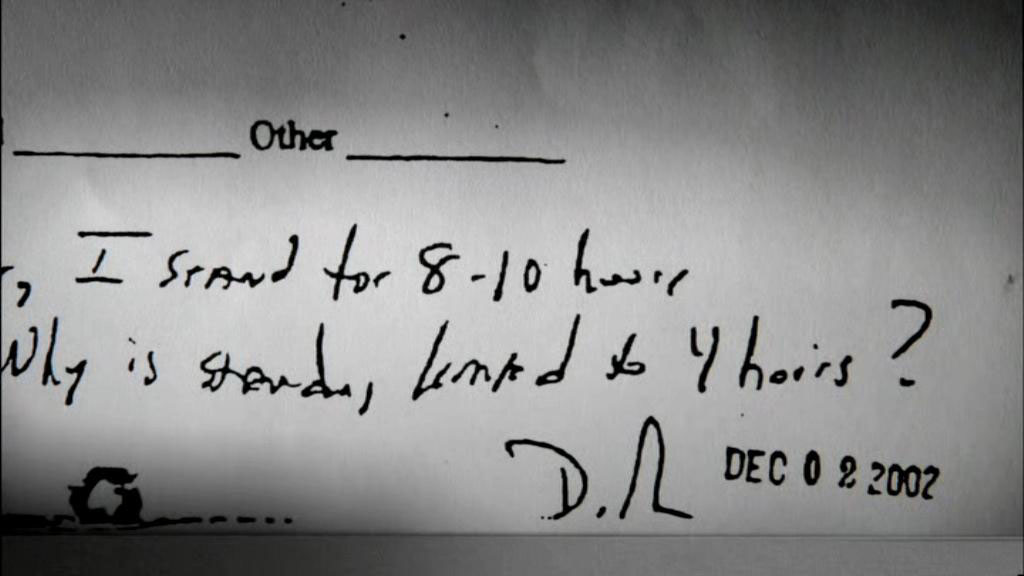 Other
, I stand for 8-10 hours
Why is standing limited to 4 hours?
D.R DEC 02 2002